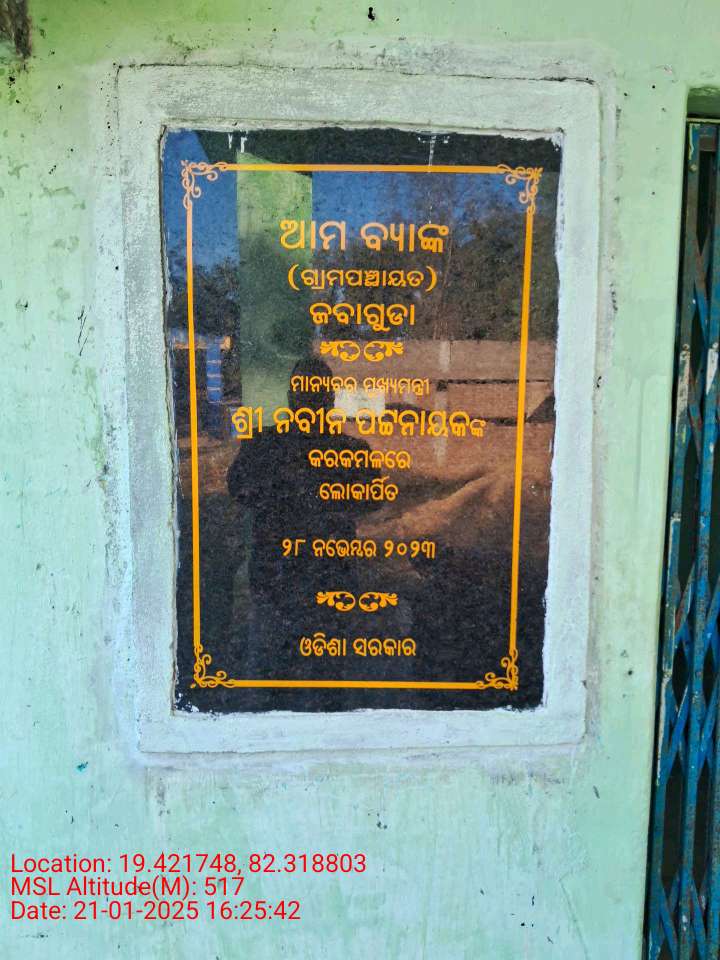 ଆମ ବ୍ୟାଙ୍କ
(ଗ୍ରାମପଞ୍ଚାୟତ)
ଜବାଗୁଡା
ମାନ୍ୟବର ମୁଖ୍ୟମନ୍ତ୍ରୀ
ଶ୍ରୀ ନବୀନ ପଟ୍ଟନାୟକଙ୍କ
କରକମଳରେ
ଲୋକାର୍ପିତ
୨୮ ନଭେମ୍ବର ୨୦୨୩
ଓଡିଶା ସରକାର
Location: 19.421748, 82.318803
MSL Altitude(M): 517
Date: 21-01-2025 16:25:42